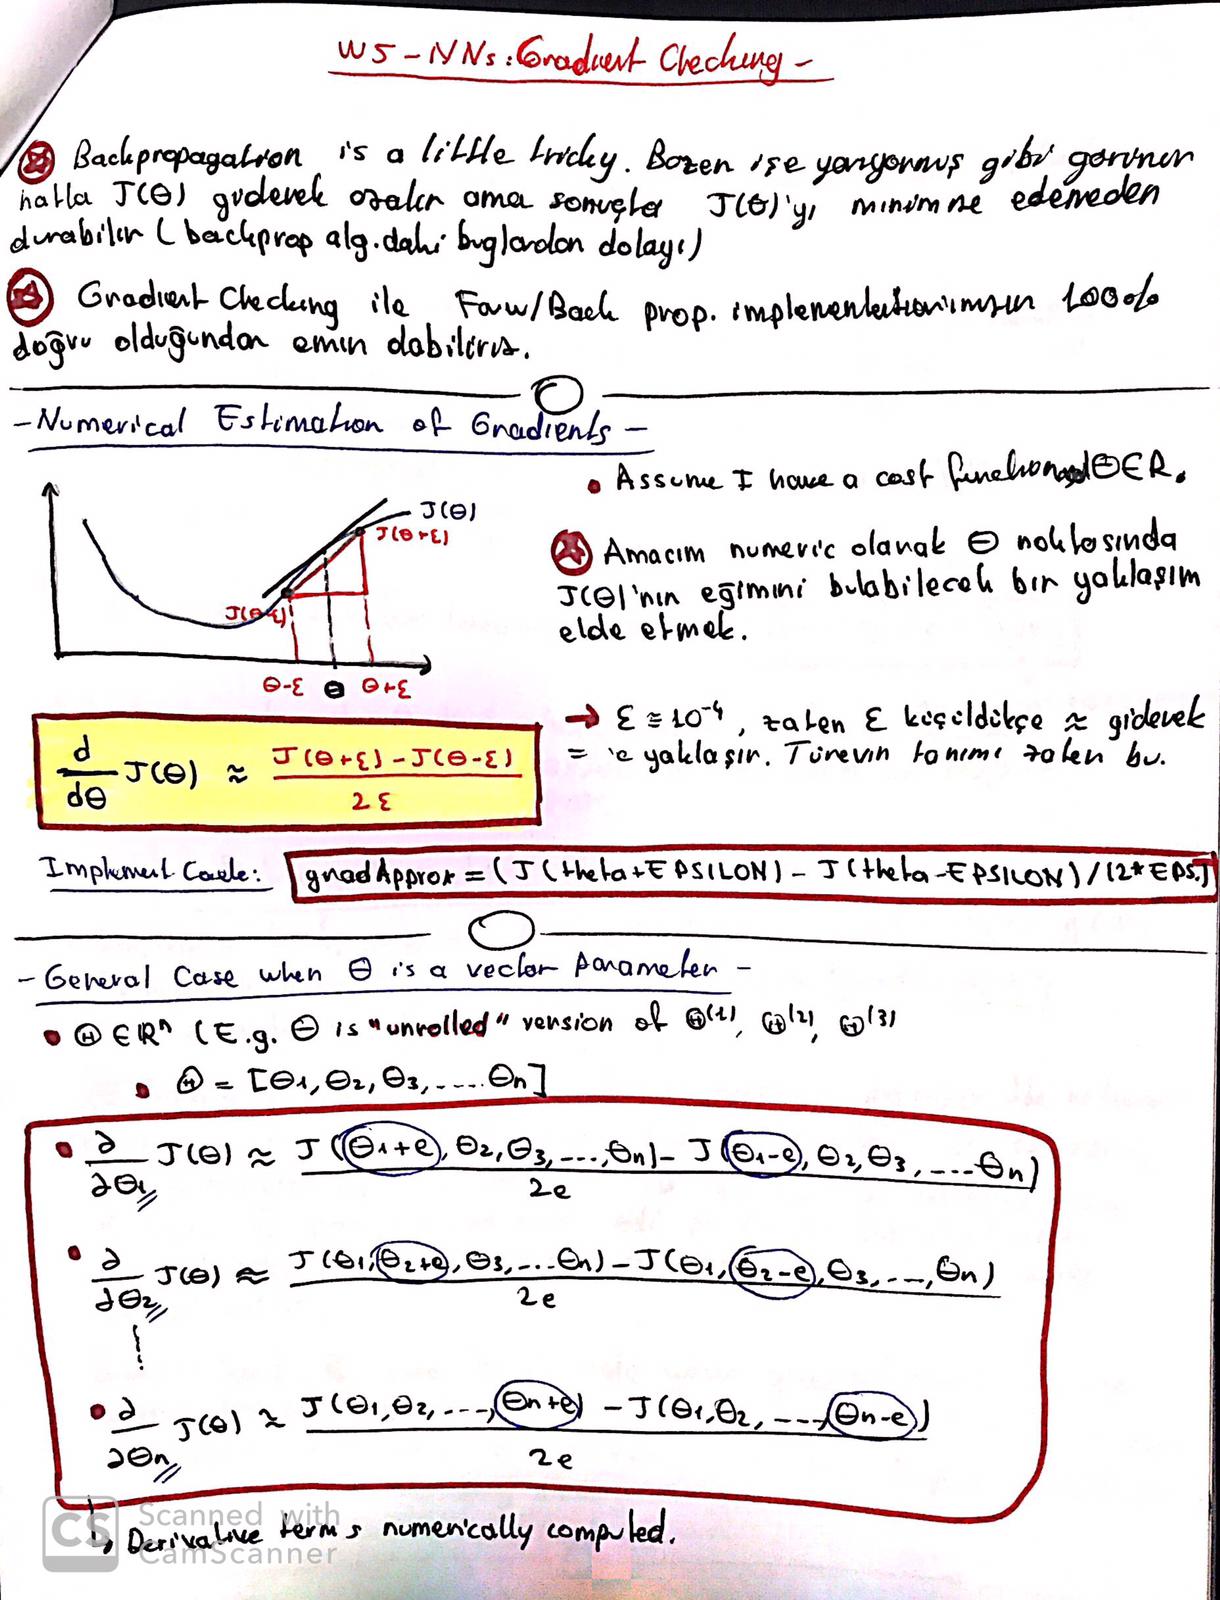 W5 - NNs: Gradient Checking -
Backpropagation is a little tricky. Bazen işe yarıyormuş gibi görünür
hatta J(Θ) giderek azalır ama sonuçta J(Θ)'yı minimize edemeden
durabilir ( backprop alg.daki buglardan dolayı)
Gradient Checking ile Forw/Back prop. implementationımızın 100%
doğru olduğundan emin olabiliriz.
- Numerical Estimation of Gradients -
• Assume I have a cost function and Θ∈R.
J(Θ)
J(Θ+ε)
J(Θ-ε)
Θ-ε Θ Θ+ε
Amacım numeric olarak Θ noktasında
J(Θ)'nın eğimini bulabilecek bir yaklaşım
elde etmek.
→ ε ≅ 10⁻⁴, zaten ε küçüldükçe ≈ giderek
= 'e yaklaşır. Türevin tanımı zaten bu.
d/dΘ J(Θ) ≈ J(Θ+ε) - J(Θ-ε) / 2ε
Implement Code: gradApprox = (J(theta+EPSILON) - J(theta-EPSILON)/(2*EPS.)
- General Case when Θ is a vector parameter -
• Θ∈Rⁿ (E.g. Θ is "unrolled" version of Θ⁽¹⁾, Θ⁽²⁾, Θ⁽³⁾
• Θ = [Θ1, Θ2, Θ3, ..... Θn]
• ∂/∂Θ1 J(Θ) ≈ J(Θ1+e, Θ2, Θ3, ...., Θn) - J(Θ1-e, Θ2, Θ3, .... Θn) / 2e
• ∂/∂Θ2 J(Θ) ≈ J(Θ1, Θ2+e, Θ3, ... Θn) - J(Θ1, Θ2-e, Θ3, ..., Θn) / 2e
• ∂/∂Θn J(Θ) ≈ J(Θ1, Θ2, ..., Θn+e) - J(Θ1, Θ2, ..., Θn-e) / 2e
↳ Derivative terms numerically computed.
CS Scanned with
CamScanner